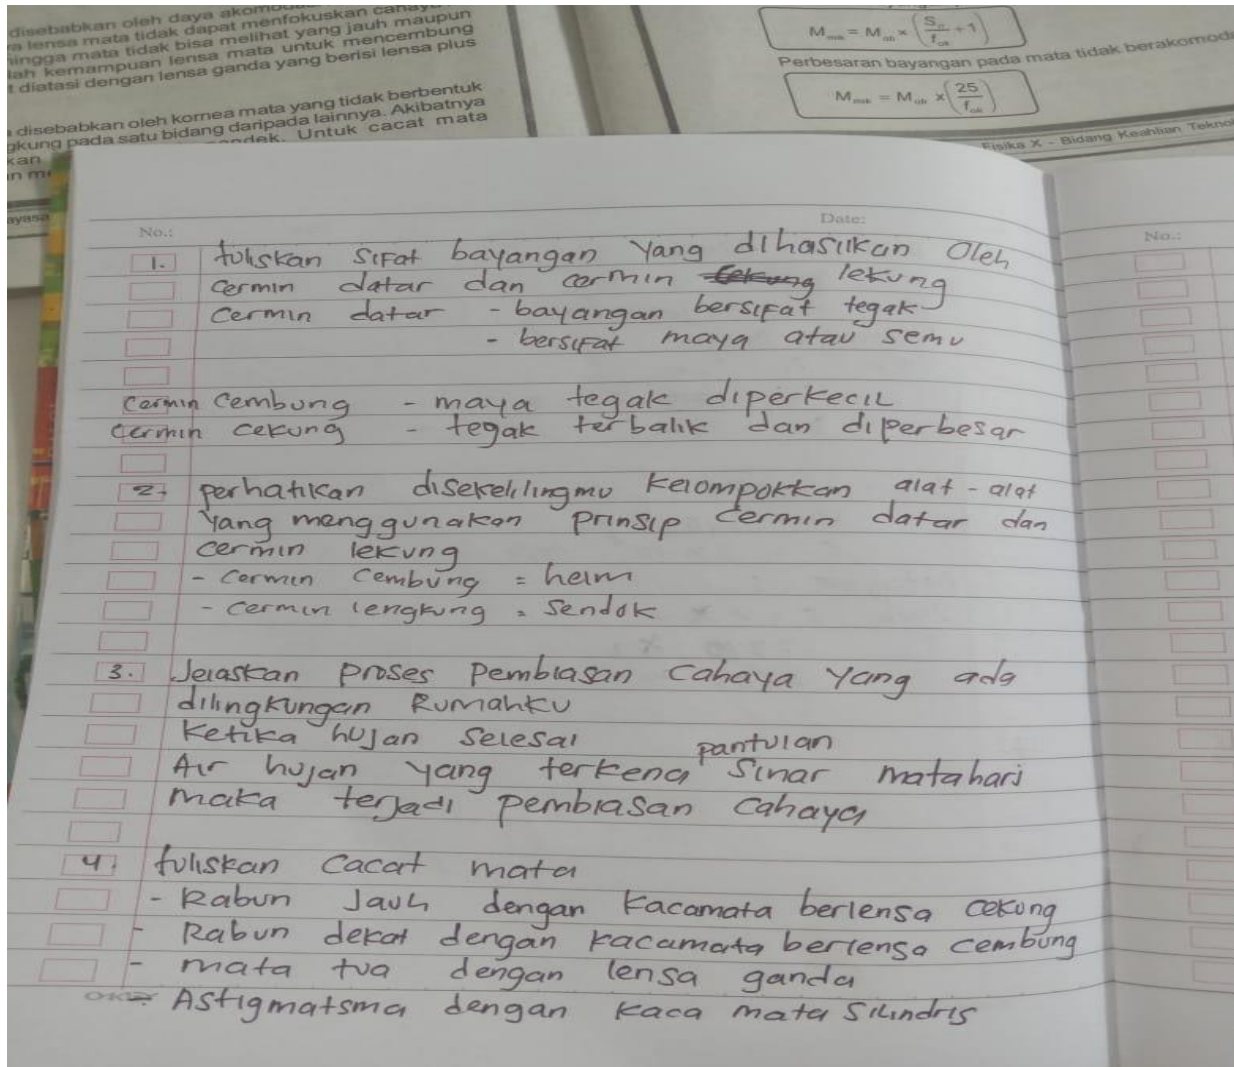 disebabkan oleh daya
a lensa mata tidak dapat menfokuskan
ingga mata tidak bisa melihat yang jauh maupun
ah kemampuan lensa mata untuk mencembung
t diatasi dengan lensa ganda yang berisi lensa plus
disebabkan oleh kornea mata yang tidak berbentuk
gkung pada satu bidang daripada lainnya. Akibatnya
Untuk cacat mata
kan
M_mik = M_ob × (S_n/f_ok + 1)
Perbesaran bayangan pada mata tidak berakomod
M_mik = M_ob × (25/f_ok)
Fisika X - Bidang Keahlian Tekno
No.:
Date:
1. tuliskan sifat bayangan yang dihasilkan Oleh
cermin datar dan cermin lekung
cermin datar - bayangan bersifat tegak
- bersifat maya atau semu
cermin cembung - maya tegak diperkecil
cermin cekung - tegak terbalik dan diperbesar
2. perhatikan disekelilingmu kelompokkan alat-alat
yang menggunakan prinsip cermin datar dan
cermin lekung
- cermin cembung = helm
- cermin lengkung = sendok
3. Jelaskan proses pembiasan cahaya yang ada
dilingkungan Rumahku
Ketika hujan selesai pantulan
Air hujan yang terkena sinar matahari
maka terjadi pembiasan cahaya
4. tuliskan cacat mata
- Rabun Jauh dengan kacamata berlensa cekung
- Rabun dekat dengan kacamata berlensa cembung
- mata tua dengan lensa ganda
- Astigmatsma dengan kaca mata silindris
No.: